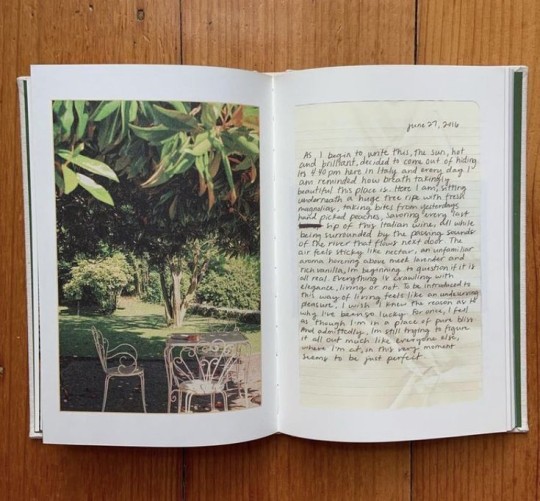 june 27, 2016
As I begin to write this, the sun, hot
and brilliant, decided to come out of hiding.
Its 4:40 pm here in Italy and every day I
am reminded how breath takingly
beautiful this place is. Here I am, sitting
underneath a huge tree ripe with fresh
magnolias, taking bites from yesterdays
hand picked peaches, savoring every last
sip of this Italian wine, all while
being surrounded by the passing sounds
of the river that flows next door. The
air feels sticky like nectar, an unfamiliar
aroma hovering above musk lavender and
rich vanilla, Im beginning to question if it is
all real. Everything is crawling with
elegance, living or not. To be introduced to
this way of living feels like an undeserving
pleasure, I wish I knew the reason as to
why I've been so lucky. For once, I feel
as though I'm in a place of pure bliss
And admittedly, Im still trying to figure
it all out much like everyone else,
where I'm at, in this very moment
seems to be just perfect.